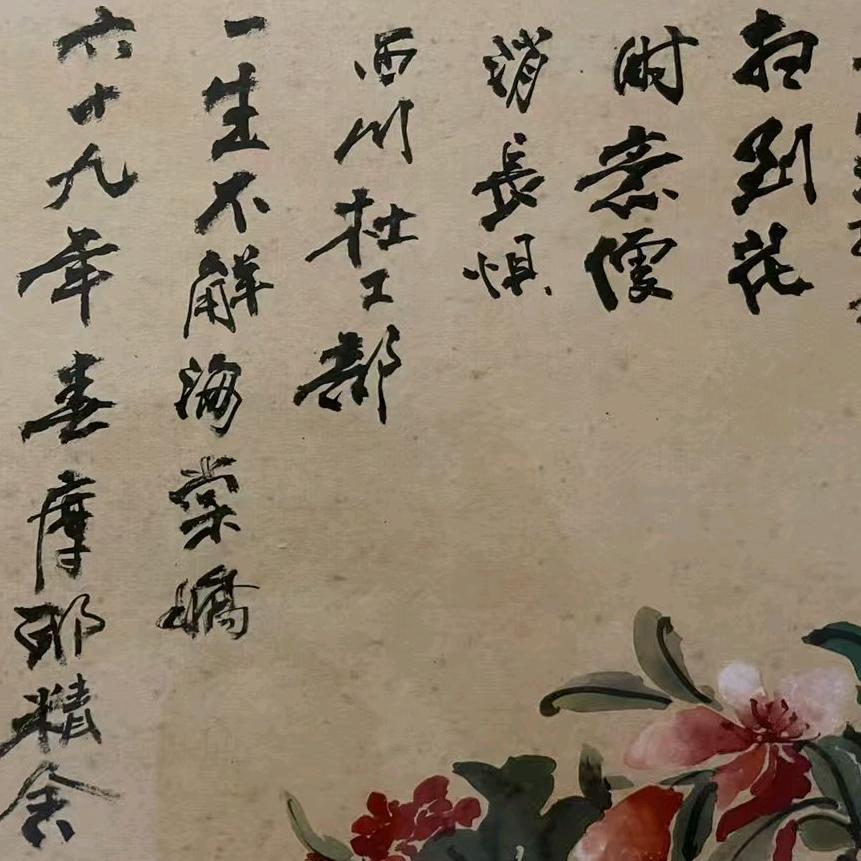 到花
时意
消長惧
西川杜工部
一生不解海棠嬌
六十九年春摩耶精舍